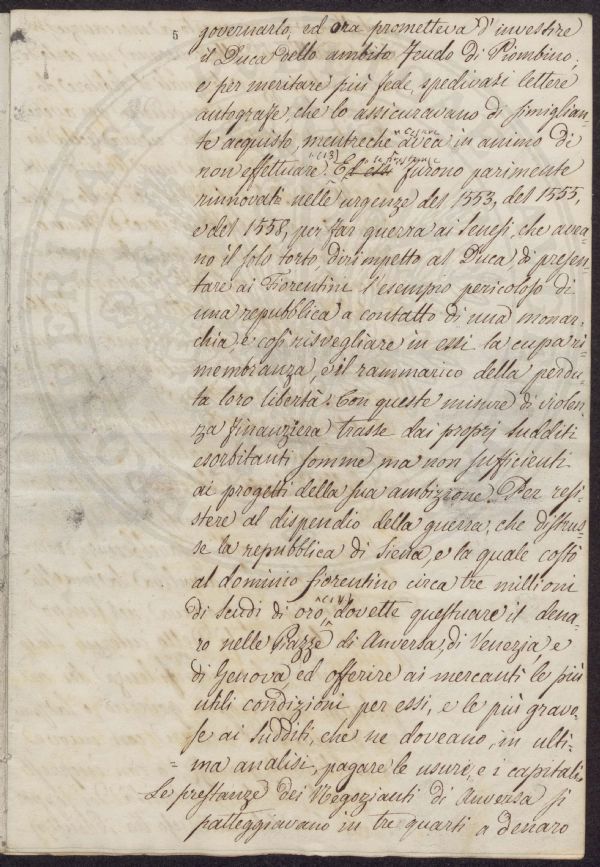 5
governarlo, ed ora prometteva d'investire
il Duca dello ambito Feudo di Piombino,
e per meritare più fede, spedivasi lettere
autografe, che lo assicuravano di simiglian-
te acquisto, mentreché Cesare avea in animo di
non effettuare. (13) Le prestanze furono parimente
rinnovate nelle urgenze del 1553, del 1555,
e del 1558, per far guerra ai Senesi, che avea-
no il solo torto, dirimpetto al Duca di presen-
tare ai Fiorentini l'esempio pericoloso di
una repubblica a contatto di una monar-
chia, e così risvegliare in essi la cupa ri-
memoranza, e il rammarico della perdu-
ta loro libertà. Con queste misure di violen-
za finanziera trasse dai proprj sudditi
esorbitanti somme, ma non sufficienti
ai progetti della sua ambizione. Per resi-
stere al dispendio della guerra, che distrus-
se la repubblica di Siena, e la quale costò
al dominio fiorentino circa tre millioni
di scudi di oro (14) dovette questuare il dena-
ro nelle Piazze di Anversa, di Venezia, e
di Genova ed offerire ai mercanti le più
utili condizioni per essi, e le più grave-
se ai sudditi, che ne doveano, in ulti-
ma analisi, pagare le usure, e i capitali.
Le prestanze dei Negozianti di Anversa si
patteggiavano in tre quarti a denaro